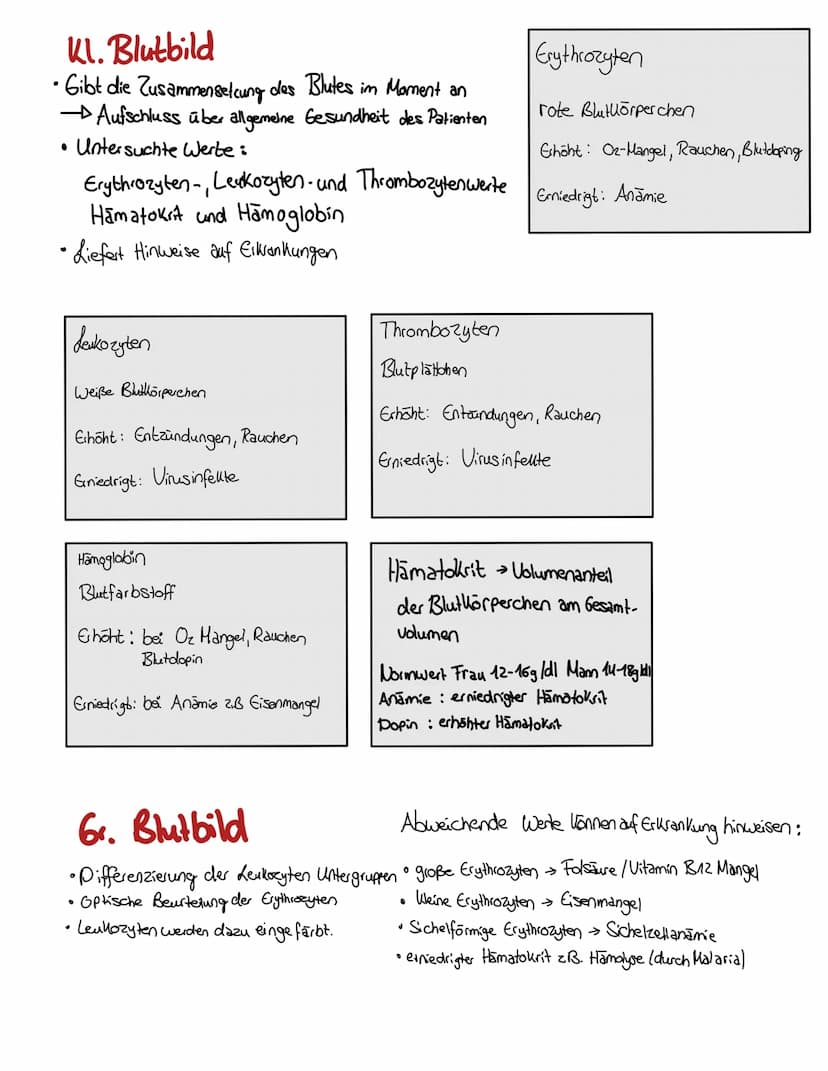 Kl. Blutbild
• Gibt die Zusammensetzung des Blutes im Moment an
→ Aufschluss über allgemeine Gesundheit des Patienten
• Untersuchte Werte:
Erythrozyten-, Leukozyten- und Thrombozytenwerte
Hämatokrit und Hämoglobin
• Liefert Hinweise auf Erkrankungen
Erythrozyten
rote Blutkörperchen
Erhöht: O2-Mangel, Rauchen, Blutdoping
Erniedrigt: Anämie
Leukozyten
Weiße Blutkörperchen
Erhöht: Entzündungen, Rauchen
Erniedrigt: Virusinfekte
Thrombozyten
Blutplättchen
Erhöht: Entzündungen, Rauchen
Erniedrigt: Virusinfekte
Hämoglobin
Blutfarbstoff
Erhöht: bei O2 Mangel, Rauchen
Blutdopin
Erniedrigt: bei Anämie z.B Eisenmangel
Hämatokrit → Volumenanteil
der Blutkörperchen am Gesamt-
volumen
Normwert Frau 12-16g/dl Mann 14-18g/dl
Anämie: erniedrigter Hämatokrit
Dopin: erhöhter Hämatokrit
Gr. Blutbild
• Differenzierung der Leukozyten Untergruppen
• Optische Beurteilung der Erythrozyten
• Leukozyten werden dazu eingefärbt.
Abweichende Werte können auf Erkrankung hinweisen:
• große Erythrozyten → Folsäure/Vitamin B12 Mangel
• kleine Erythrozyten → Eisenmangel
• Sichelförmige Erythrozyten → Sichelzellanämie
• erniedrigter Hämatokrit z.B. Hämolyse (durch Malaria)